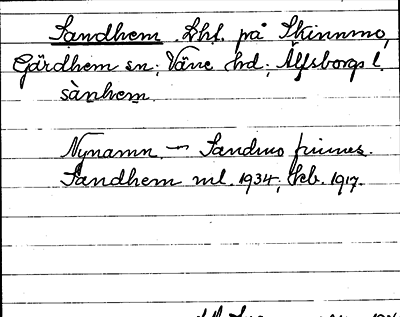 Sandhem. Lht. på Skinnmo,
Gärdhem sn; Väne hd; Älfsborgs l.
sànhem.
Nynamn. — Sandmo finnes.
Sandhem ml. 1934; Jkb. 1917.